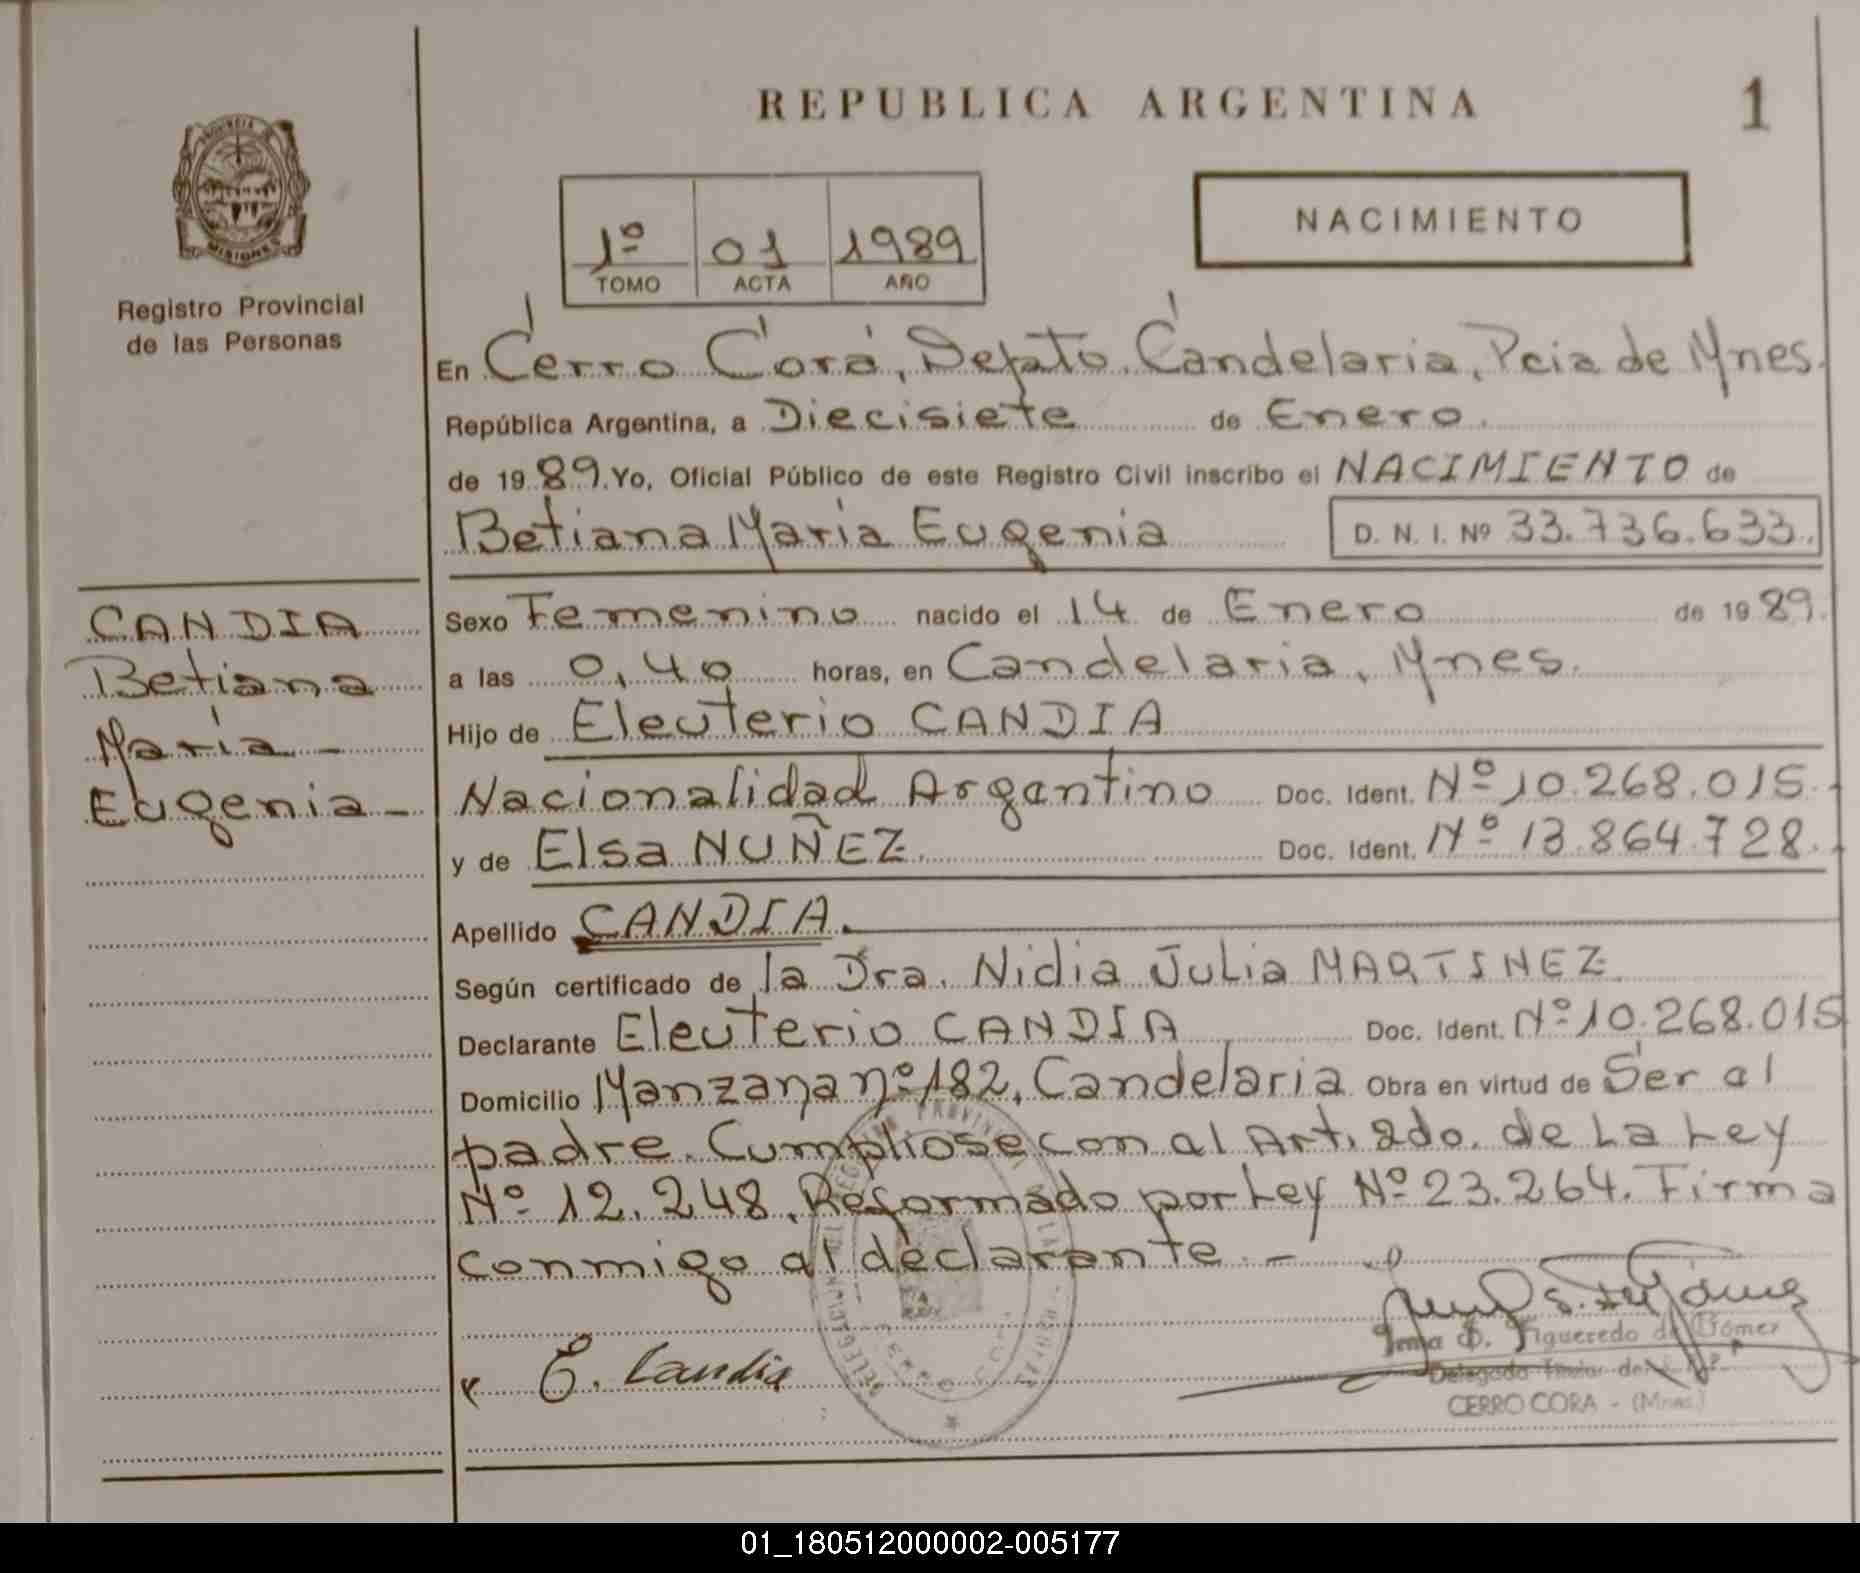 REPUBLICA ARGENTINA
1
PROVINCIA DE
MISIONES
Registro Provincial
de las Personas
1º 01 1989
TOMO ACTA AÑO
NACIMIENTO
En Cerro Corá, Depto. Candelaria, Pcia de Mnes.
República Argentina, a Diecisiete de Enero.
de 1989. Yo, Oficial Público de este Registro Civil inscribo el NACIMIENTO de
Betiana María Eugenia D. N. I. Nº 33.736.633.
CANDIA
Betiana
María -
Eugenia -
Sexo Femenino nacido el 14 de Enero de 1989.
a las 0,40 horas, en Candelaria, Mnes.
Hijo de Eleuterio CANDIA
Nacionalidad Argentino Doc. Ident. Nº 10.268.015.
y de Elsa NUÑEZ. Doc. Ident. Nº 13.864.728.
Apellido CANDIA.
Según certificado de la Dra. Nidia Julia MARTINEZ
Declarante Eleuterio CANDIA Doc. Ident. Nº 10.268.015
Domicilio Manzana nº 182, Candelaria Obra en virtud de Ser al
padre. Cumpliose con al Art. 2do. de La Ley
Nº 12.248. Reformado por Ley Nº 23.264. Firma
conmigo al declarante. -
E. Candia
Irma S. Figueredo de Gómez
Delegado Titular
CERRO CORA - (Mnes.)
01_180512000002-005177